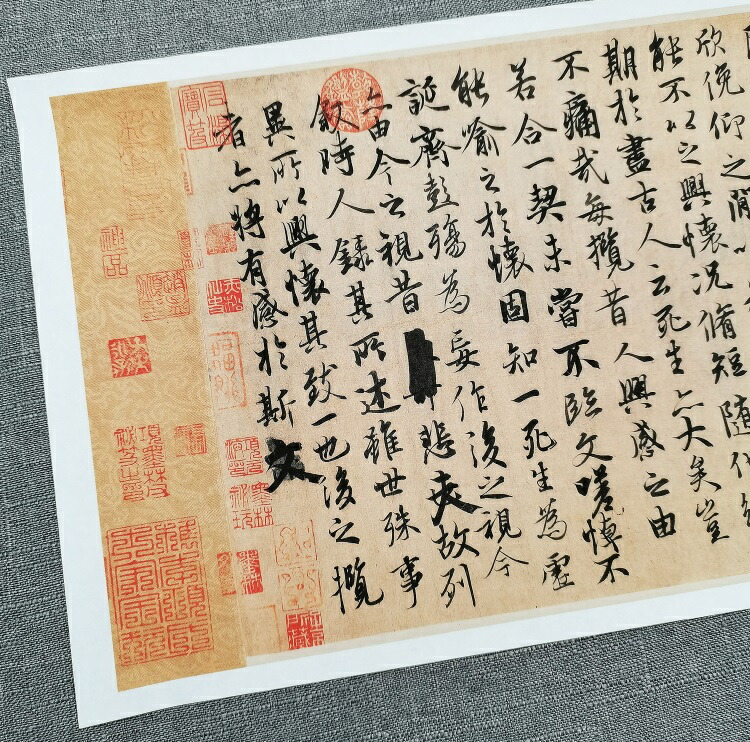 欣俛仰之閒以
能不以之興懷況脩短隨化終
期於盡古人云死生亦大矣豈
不痛哉每攬昔人興感之由
若合一契未嘗不臨文嗟悼不
能喻之於懷固知一死生為虛
誕齊彭殤為妄作後之視今
亦由今之視昔悲夫故列
敘時人錄其所述雖世殊事
異所以興懷其致一也後之攬
者亦將有感於斯文
神品